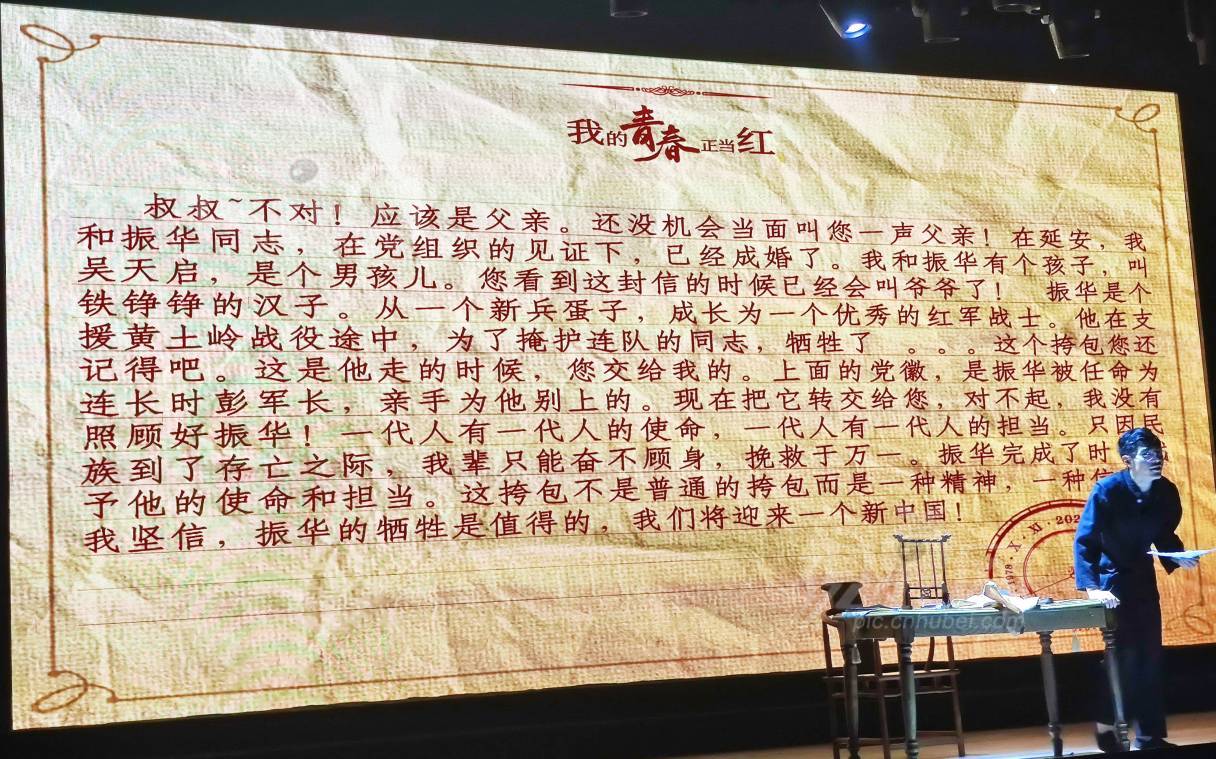 我的青春正当红
叔叔~不对！应该是父亲。还没机会当面叫您一声父亲！在延安，我
和振华同志，在党组织的见证下，已经成婚了。我和振华有个孩子，叫
吴天启，是个男孩儿。您看到这封信的时候已经会叫爷爷了！ 振华是个
铁铮铮的汉子。从一个新兵蛋子，成长为一个优秀的红军战士。他在支
援黄土岭战役途中，为了掩护连队的同志，牺牲了 。。。这个挎包您还
记得吧。这是他走的时候，您交给我的。上面的党徽，是振华被任命为
连长时彭军长，亲手为他别上的。现在把它转交给您，对不起，我没有
照顾好振华！一代人有一代人的使命，一代人有一代人的担当。只因民
族到了存亡之际，我辈只能奋不顾身，挽救于万一。振华完成了时
予他的使命和担当。这挎包不是普通的挎包而是一种精神，一种信
我坚信，振华的牺牲是值得的，我们将迎来一个新中国！
1978·X·XI·202
pic.cnhubei.com